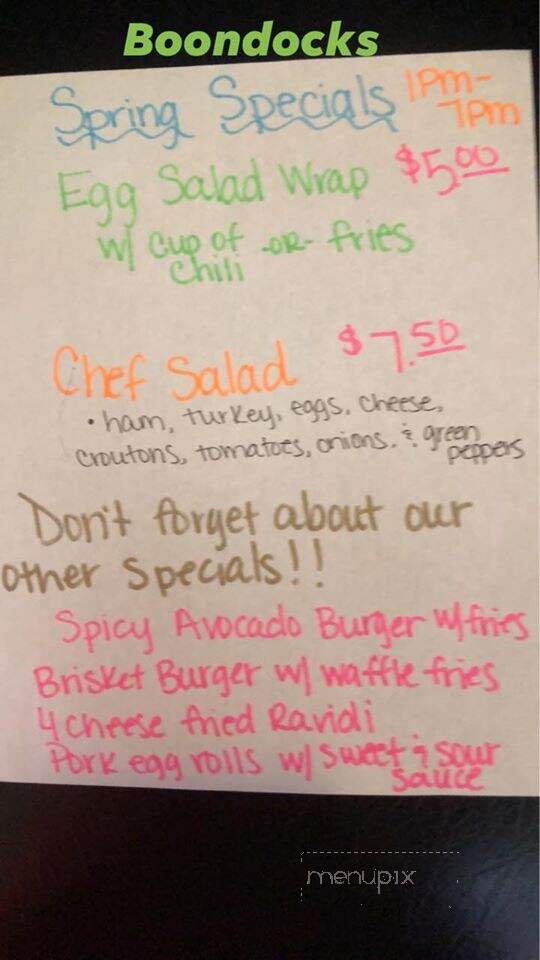 Boondocks
Spring Specials 1pm-
7pm
Egg Salad Wrap $5.00
w/ cup of -OR- fries
chili
Chef Salad $7.50
• ham, turkey, eggs, cheese,
croutons, tomatoes, onions, & green
peppers
Don't forget about our
other specials!!
Spicy Avocado Burger w/ fries
Brisket Burger w/ waffle fries
4 cheese fried Ravioli
Pork egg rolls w/ sweet & sour
sauce
menupix